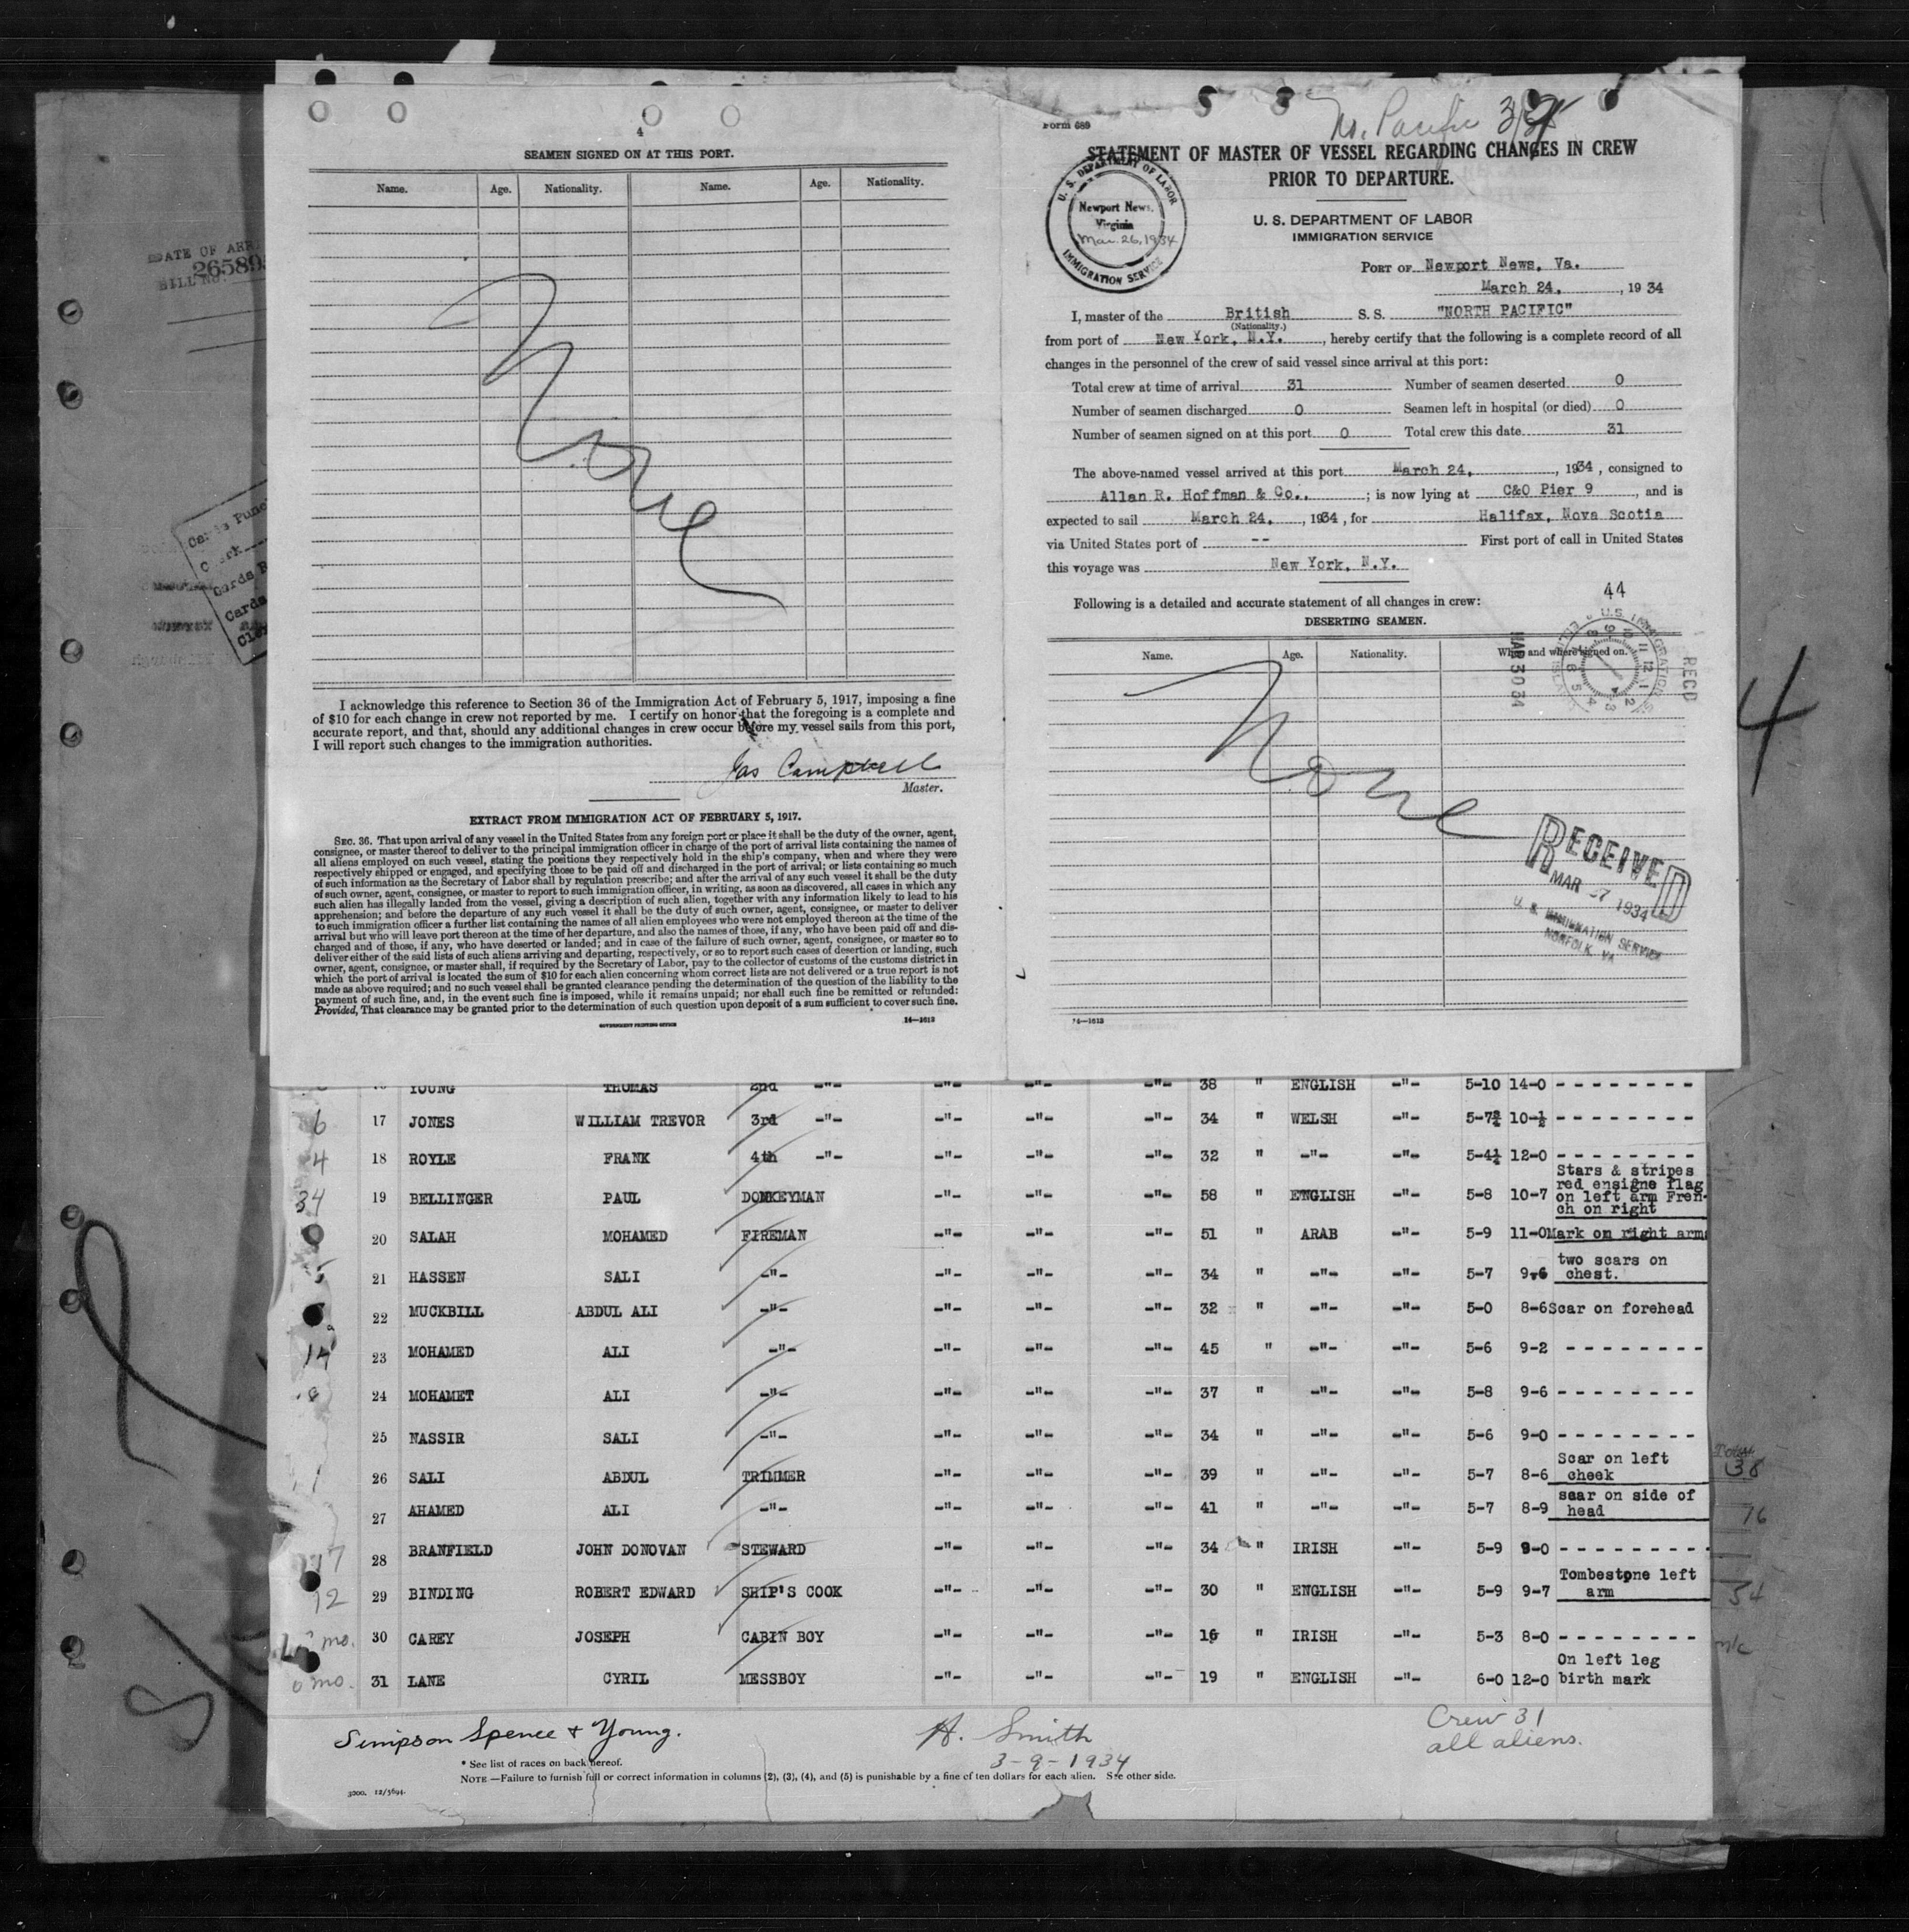 4
SEAMEN SIGNED ON AT THIS PORT.
Name. Age. Nationality. Name. Age. Nationality.
None
I acknowledge this reference to Section 36 of the Immigration Act of February 5, 1917, imposing a fine
of $10 for each change in crew not reported by me. I certify on honor that the foregoing is a complete and
accurate report, and that, should any additional changes in crew occur before my vessel sails from this port,
I will report such changes to the immigration authorities.
Jas Campbell
Master.
EXTRACT FROM IMMIGRATION ACT OF FEBRUARY 5, 1917.
SEC. 36. That upon arrival of any vessel in the United States from any foreign port or place it shall be the duty of the owner, agent,
consignee, or master thereof to deliver to the principal immigration officer in charge of the port of arrival lists containing the names of
all aliens employed on such vessel, stating the positions they respectively hold in the ship's company, when and where they were
respectively shipped or engaged, and specifying those to be paid off and discharged in the port of arrival; or lists containing so much
of such information as the Secretary of Labor shall by regulation prescribe; and after the arrival of any such vessel it shall be the duty
of such owner, agent, consignee, or master to report to such immigration officer, in writing, as soon as discovered, all cases in which any
such alien has illegally landed from the vessel, giving a description of such alien, together with any information likely to lead to his
apprehension; and before the departure of any such vessel it shall be the duty of such owner, agent, consignee, or master to deliver
to such immigration officer a further list containing the names of all alien employees who were not employed thereon at the time of the
arrival but who will leave port thereon at the time of her departure, and also the names of those, if any, who have been paid off and dis-
charged and of those, if any, who have deserted or landed; and in case of the failure of such owner, agent, consignee, or master so to
deliver either of the said lists of such aliens arriving and departing, respectively, or so to report such cases of desertion or landing, such
owner, agent, consignee, or master shall, if required by the Secretary of Labor, pay to the collector of customs of the customs district in
which the port of arrival is located the sum of $10 for each alien concerning whom correct lists are not delivered or a true report is not
made as above required; and no such vessel shall be granted clearance pending the determination of the question of the liability to the
payment of such fine, and, in the event such fine is imposed, while it remains unpaid; nor shall such fine be remitted or refunded:
Provided, That clearance may be granted prior to the determination of such question upon deposit of a sum sufficient to cover such fine.
GOVERNMENT PRINTING OFFICE 14—1613
Form 689
No. Pacific
STATEMENT OF MASTER OF VESSEL REGARDING CHANGES IN CREW
PRIOR TO DEPARTURE.
U. S. DEPARTMENT OF LABOR
IMMIGRATION SERVICE
Newport News,
Virginia
Mar. 26, 1934
U. S. DEPARTMENT OF LABOR
IMMIGRATION SERVICE
PORT OF Newport News, Va.
March 24, , 1934
I, master of the British S. S. "NORTH PACIFIC"
(Nationality.)
from port of New York, N.Y. , hereby certify that the following is a complete record of all
changes in the personnel of the crew of said vessel since arrival at this port:
Total crew at time of arrival 31 Number of seamen deserted 0
Number of seamen discharged 0 Seamen left in hospital (or died) 0
Number of seamen signed on at this port 0 Total crew this date 31
The above-named vessel arrived at this port March 24, , 1934, consigned to
Allan R. Hoffman & Co., ; is now lying at C&O Pier 9 , and is
expected to sail March 24, , 1934, for Halifax, Nova Scotia
via United States port of -- First port of call in United States
this voyage was New York, N.Y.
44
Following is a detailed and accurate statement of all changes in crew:
DESERTING SEAMEN.
Name. Age. Nationality. When and where signed on.
MAR 30 34
RECD
None
RECEIVED
MAR 27 1934
U. S. IMMIGRATION SERVICE
NORFOLK, VA
14—1613
DATE OF ARR
BILL NO. 26589
4
YOUNG THOMAS 2nd -"- -"- -"- -"- 38 " ENGLISH -"- 5-10 14-0 - - - - - - - -
6 17 JONES WILLIAM TREVOR 3rd -"- -"- -"- -"- 34 " WELSH -"- 5-7¾ 10-½ - - - - - - - -
4 18 ROYLE FRANK 4th -"- -"- -"- -"- 32 " -"- -"- 5-4½ 12-0 - - - - - - - -
34 19 BELLINGER PAUL DONKEYMAN -"- -"- -"- 58 " ENGLISH -"- 5-8 10-7 Stars & stripes
red ensigne flag
on left arm Fren-
ch on right
20 SALAH MOHAMED FIREMAN -"- -"- -"- 51 " ARAB -"- 5-9 11-0 Mark on right arm
21 HASSEN SALI -"- -"- -"- -"- 34 " -"- -"- 5-7 9-6 two scars on
chest.
22 MUCKBILL ABDUL ALI -"- -"- -"- -"- 32 " -"- -"- 5-0 8-6 Scar on forehead
14 23 MOHAMED ALI -"- -"- -"- -"- 45 " -"- -"- 5-6 9-2 - - - - - - - -
24 MOHAMET ALI -"- -"- -"- -"- 37 " -"- -"- 5-8 9-6 - - - - - - - -
25 NASSIR SALI -"- -"- -"- -"- 34 " -"- -"- 5-6 9-0 - - - - - - - -
26 SALI ABDUL TRIMMER -"- -"- -"- 39 " -"- -"- 5-7 8-6 Scar on left
cheek
27 AHAMED ALI -"- -"- -"- -"- 41 " -"- -"- 5-7 8-9 scar on side of
head
28 BRANFIELD JOHN DONOVAN STEWARD -"- -"- -"- 34 " IRISH -"- 5-9 9-0 - - - - - - - -
12 29 BINDING ROBERT EDWARD SHIP'S COOK -"- -"- -"- 30 " ENGLISH -"- 5-9 9-7 Tombestone left
arm
mo. 30 CAREY JOSEPH CABIN BOY -"- -"- -"- 16 " IRISH -"- 5-3 8-0 - - - - - - - -
mo. 31 LANE CYRIL MESSBOY -"- -"- -"- 19 " ENGLISH -"- 6-0 12-0 On left leg
birth mark
Simpson Spence & Young.
A. Smith
3-9-1934
Crew 31
all aliens.
* See list of races on back hereof.
NOTE.—Failure to furnish full or correct information in columns (2), (3), (4), and (5) is punishable by a fine of ten dollars for each alien. See other side.
3000. 12/5694.